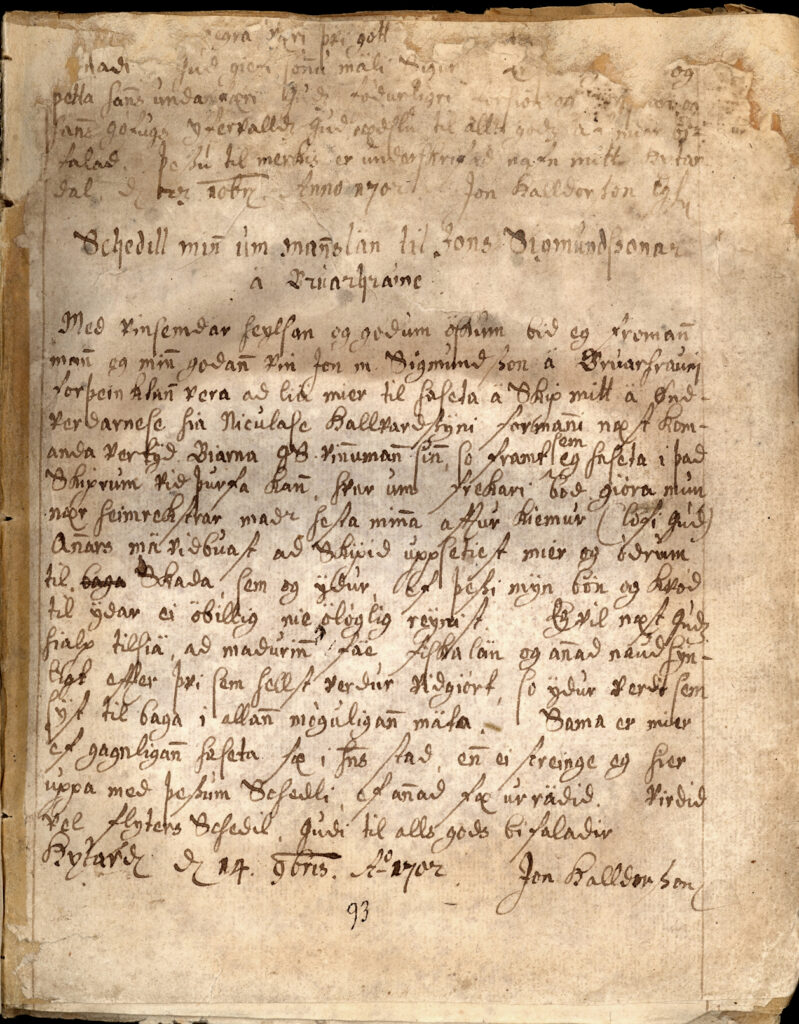 þvi gott
Gud giefi
og
þetta hanns
hanns gofugs til alls gods
falad. til merkis er underskrifad nafn mitt
dal, d 10bris Anno 1702 Jon Halldorsson
Schedill minn um mannslän til Jons Sigmundssonar
ä Bruarhraune
Med vinsemdar heylsan og godum öskum bid eg fromann
mann og minn godann vin Jon m Sigmundsson ä Bruarhrauni
forþeinktann vera ad liä mier til haseta ä Skip mitt ä Ønd-
verdarnese hia Niculase Hallvardssÿni formanni næst kom-
anda vertÿd Biarna GS vinnumann sinn, so framt sem eg haseta i þad
Skiprum vid þurfa kann, hvar um frekari bod giöra mun
nær heimrekstrar madr hesta minna aftur kiemur (lofi Gud)
Annars mä vidbuast ad Skipid uppsetiest mier og ödrum
til baga Skada, sem og ÿdur, ef þessi mÿn bön og kvöd
til ÿdar ei öbillig nie ölöglig reÿnist. Eg vil næst Guds
hialp tilsiä, ad madurinn fae fiskalän og annad naudsÿn-
ligt efter þvi sem hellst verdur vidgiört, so ÿdur verdi sem
sÿst til baga i allann möguligann mäta. Sama er mier
ef gagnligann haseta fæ i hns stad, enn ei streinge eg hier
uppa med þessum Schedli, ef annad fæ urrädid. Virdid
vel flyters Schedil, Gudi til alls gods bifaladir
Hytard d 14. 9bris. Ao 1702 Jon Halldorsson
93